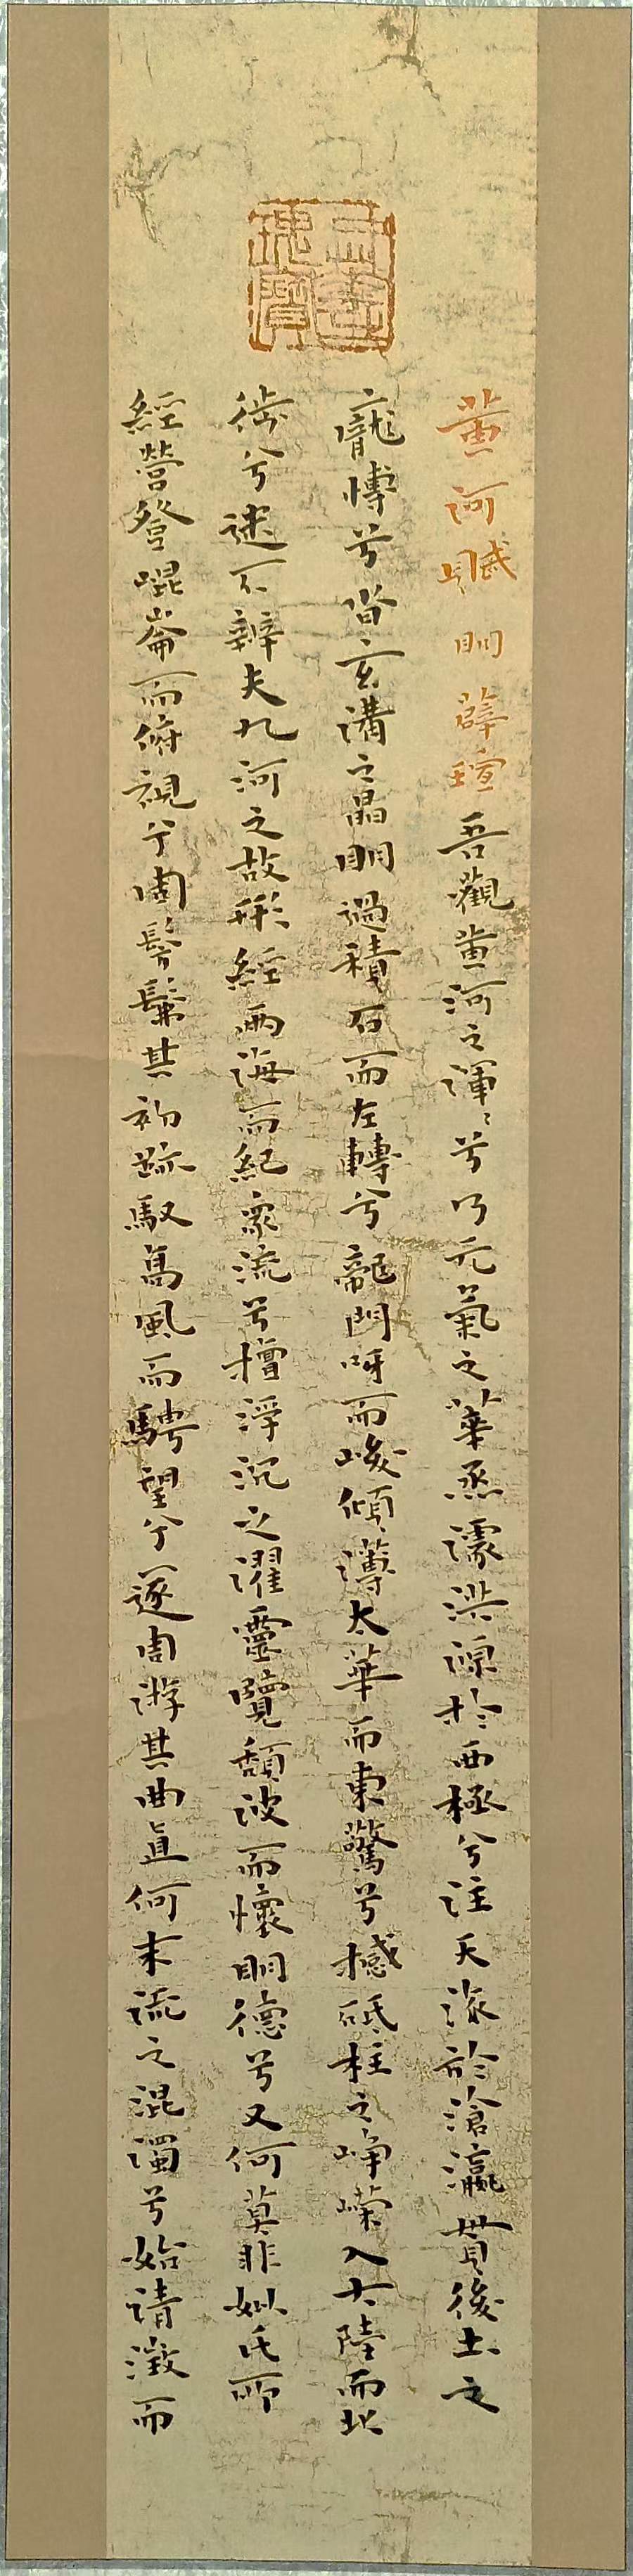 石室
瑰寶
黃河賦明薛瑄吾觀黃河之渾〻兮乃元氣之華烝濬洪源於西極兮注天派於滄瀛貫後土之
龐愽兮沓玄溝之晶明過積石而左轉兮龍門呀而峻傾薄太華而東騖兮撼砥柱之崢嶸入大陸而北
徙兮迷不辨夫九河之故形經兩海而紀衆流兮擅浮沉之濯靈覽頹波而懷明德兮又何莫非姒氏所
經營登崐崙而俯視兮固髣髴其初跡馭高風而騁望兮遂周游其曲直何末流之混濁兮始清澂而